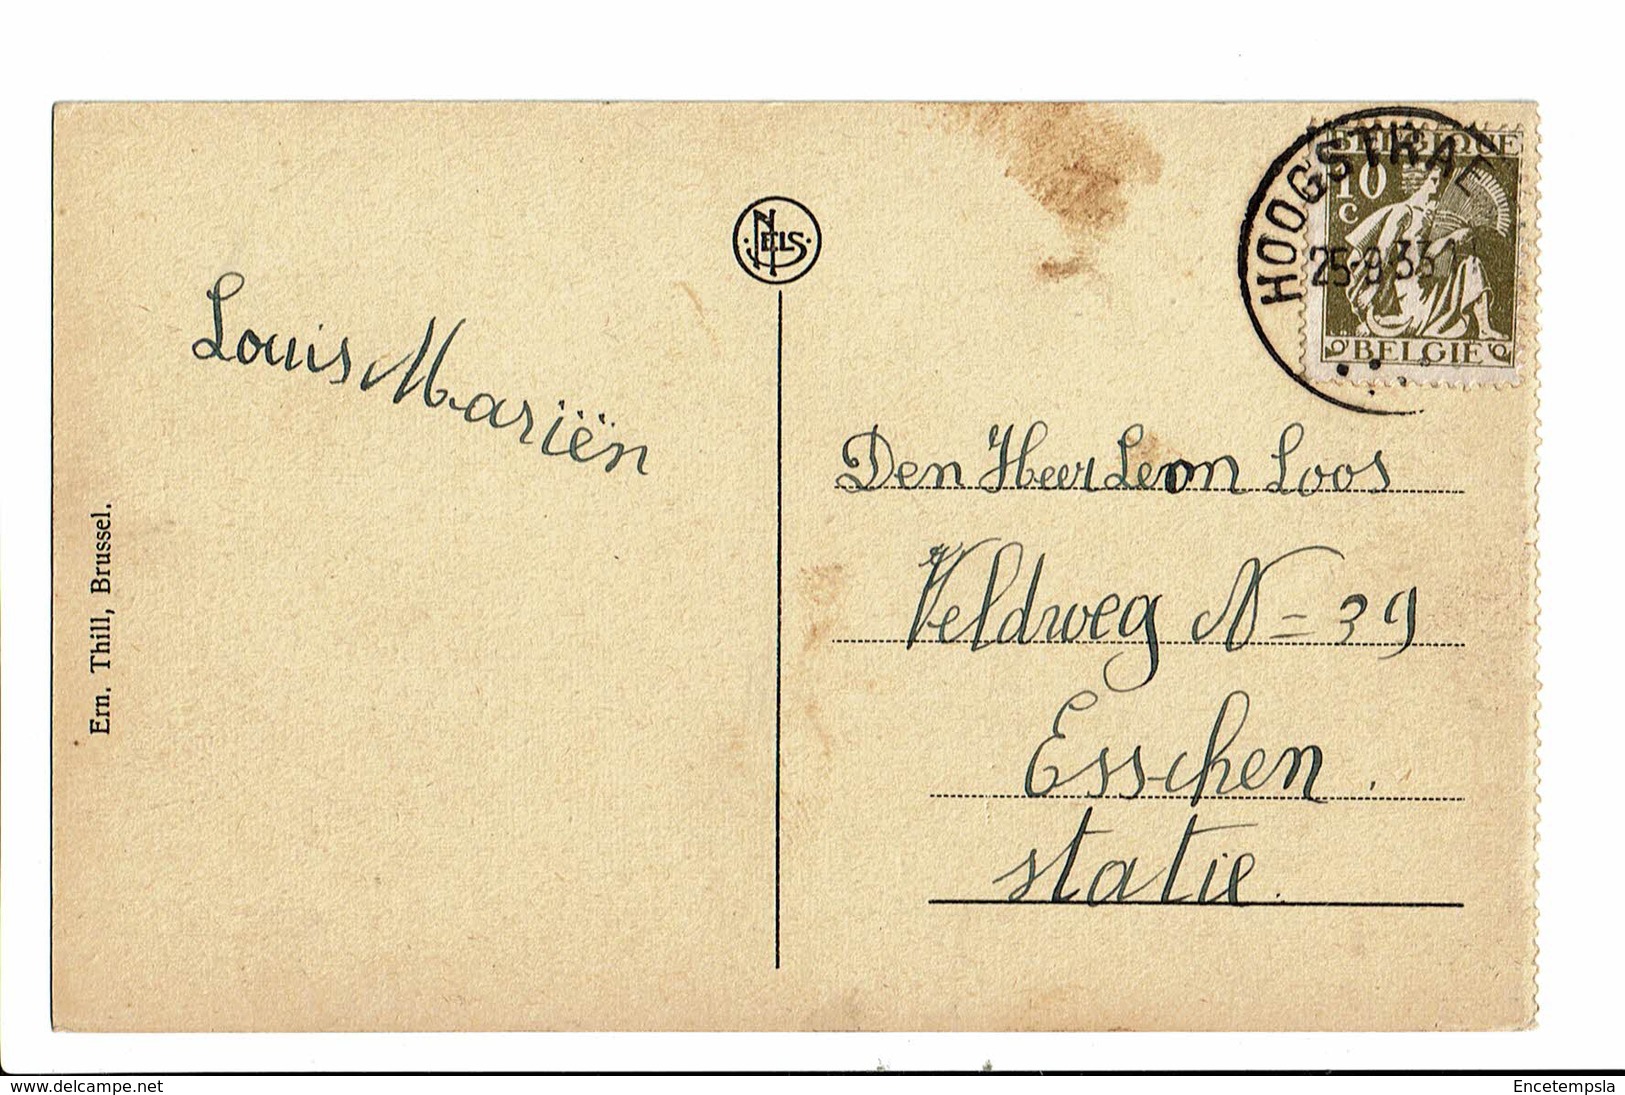 NELS
Louis Mariën
Ern. Thill, Brussel.
BELGIQUE
10
C
BELGIE
HOOGSTRAE
25-9 33
Den Heer Leon Loos
Veldweg N = 39
Esschen.
statie.
www.delcampe.net
Encetempsla